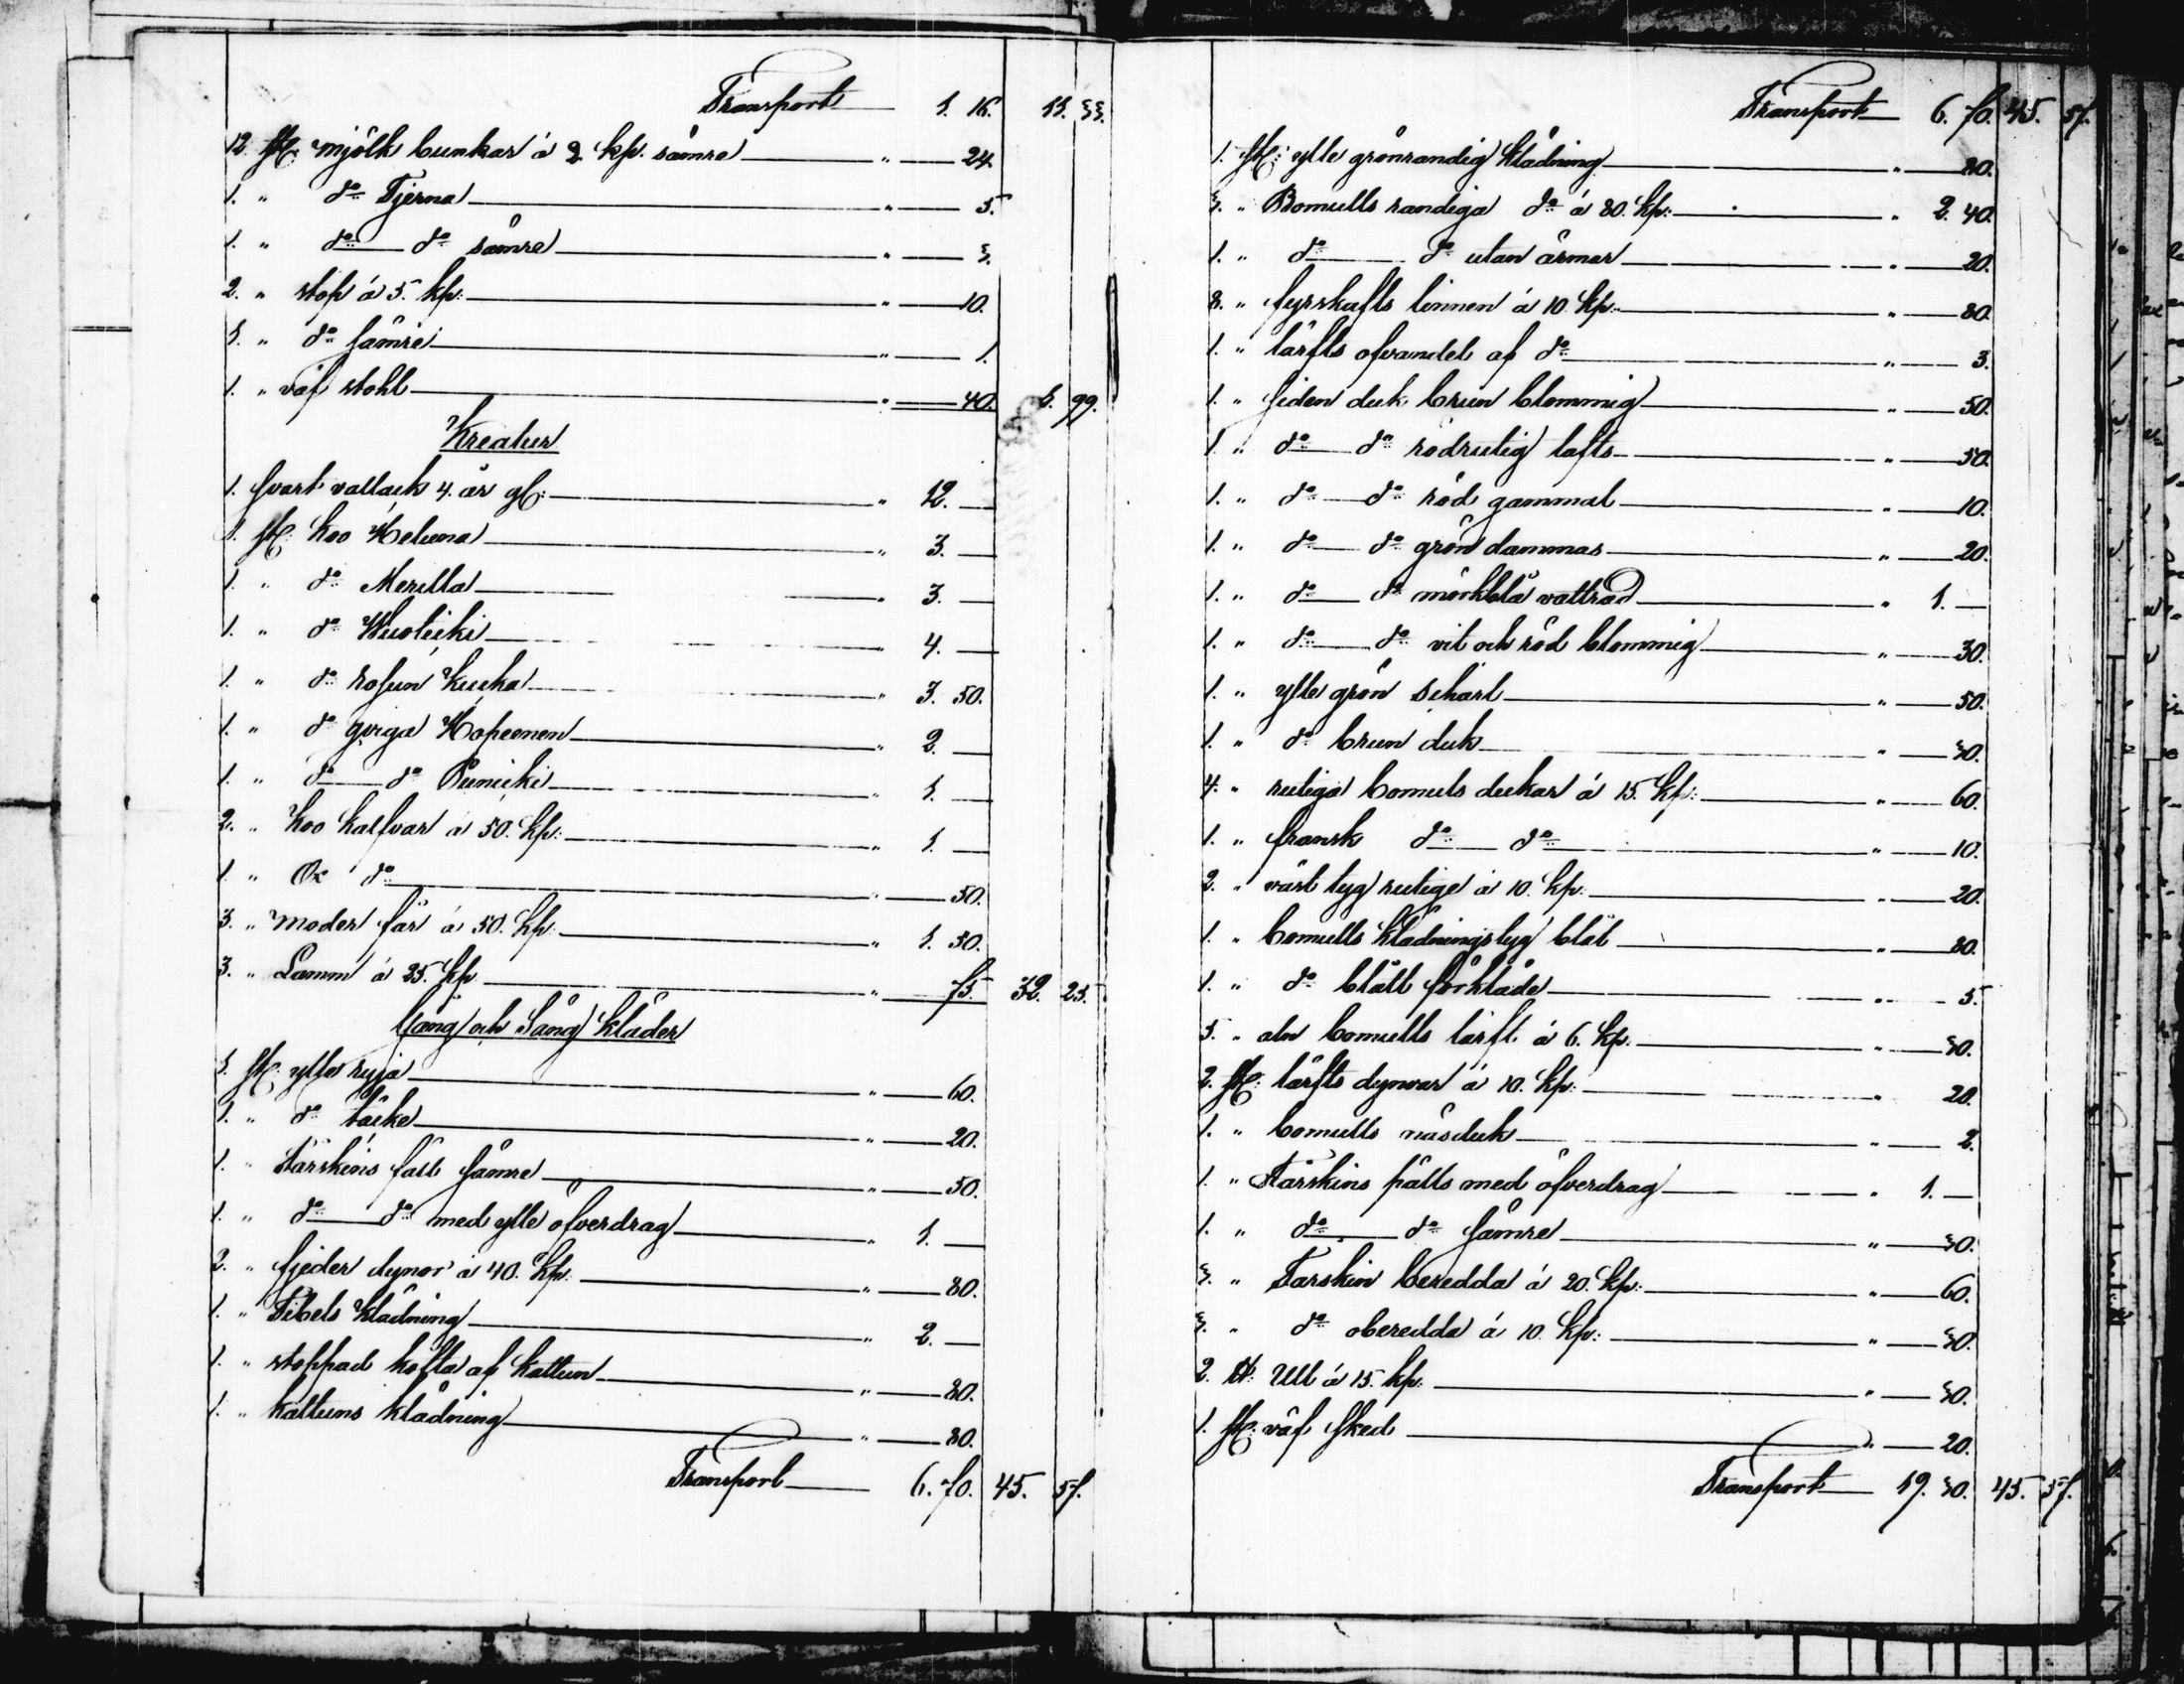 Transport 1. 16. 11. 33.
12. st: mjölk bunkar á 2 kp. sämre " 24.
1. " do Tjerna " 5.
1. " do do sämre " 3.
2. " stop á 5. kp: " 10.
1. " do sämre " 1.
1. " väf stohl " 40. 1. 99.
Kreatur
1. svart vallack 4. år gl: " 12. —
1. st: koo Heluna " 3. —
1. " do Merilla " 3. —
1. " do Wuolicki " 4. —
1. " do rosun kucka " 3. 50.
1. " do qviga Hopeonen " 2. —
1. " do do Punicki " 1. —
2. " koo kalfvar á 50. kp: " 1. —
1. " Ox do " 50.
3. " moder får á 50. kp: " 1. 50.
3. " Lamm á 25. kp " 75. 32. 25.
Gång och Säng kläder
1. st: ylle ryja " 60.
1. " do täcke " 20.
1. " Fårskins fäll sämre " 50.
1. " do do med ylle öfverdrag " 1. —
2. " fjeder dynor á 40. kp: " 80.
1. " Tibets klädning " 2. —
1. " stoppad kofta af kattun " 80.
1. " kattuns klädning " 80.
Transport 6. 70. 45. 57.
Transport 6. 70. 45. 57.
1. st: ylle grönrandig klädning " 80.
3. " Bomulls randiga do á 80. kp: " 2. 40.
1. " do do utan ärmar " 20.
8. " fyrskafts linnen á 10. kp: " 80.
1. " lärfts ofvandel af do " 3.
1. " siden duk brun blommig " 50.
1. " do do rödrutig tafts " 50.
1. " do do röd gammal " 10.
1. " do do grön dammas " 20.
1. " do do mörkblå vattrad " 1. —
1. " do do vit och röd blommig " 30.
1. " ylle grön schart " 50.
1. " do brun duk " 30.
4. " rutiga bomuls dukar á 15. kp: " 60.
1. " fransk do do " 10.
2. " väst tyg rutige á 10. kp: " 20.
1. " bomulls klädningstyg blåt " 80.
1. " do blått förkläde " 5.
5. " aln bomulls lärft á 6. kp. " 30.
2. st: lärfts dynvar á 10. kp: " 20.
1. " bomulls näsduk " 2.
1. " Fårskins pälts med öfverdrag " 1. —
1. " do do sämre " 30.
3. " Fårskin beredda á 20. kp: " 60.
3. " do oberedda á 10. kp: " 30.
2. ℔ Ull á 15. kp. " 30.
1. st: väf sked " 20.
Transport 19. 30. 45. 57.